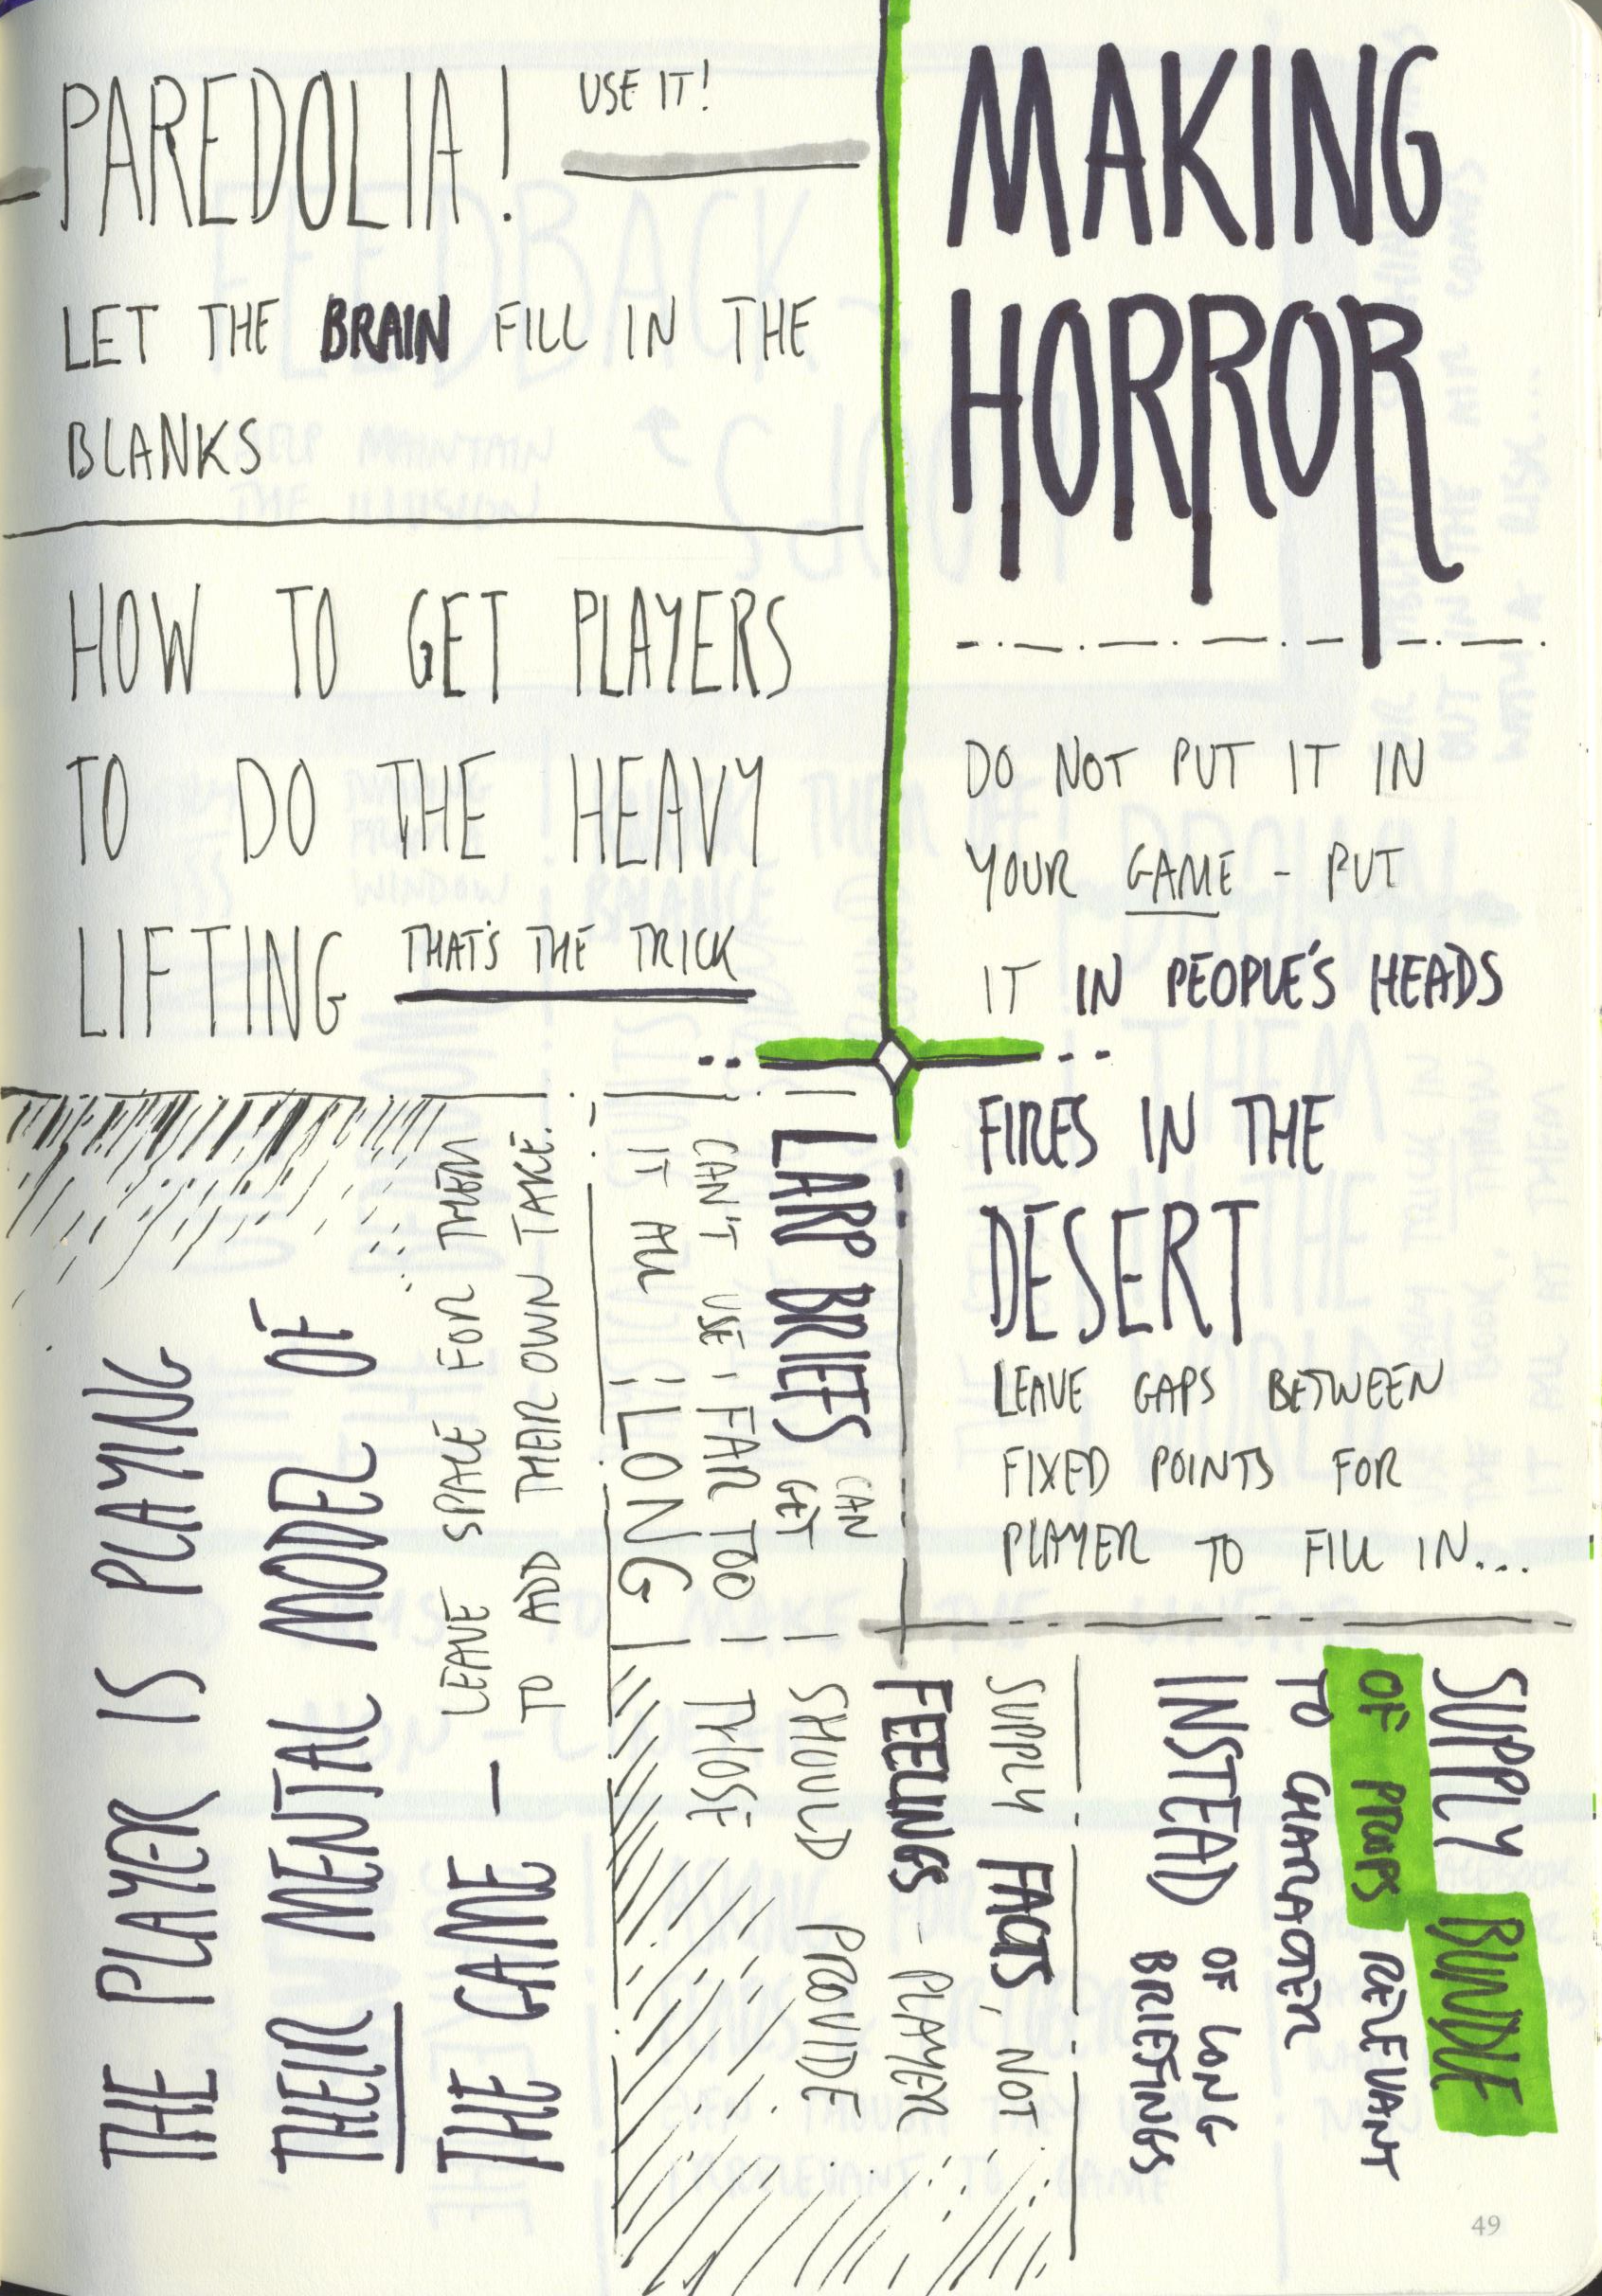 PAREDOLIA!
USE IT!
LET THE BRAIN FILL IN THE
BLANKS
HOW TO GET PLAYERS
TO DO THE HEAVY
LIFTING THAT'S THE TRICK
MAKING
HORROR
DO NOT PUT IT IN
YOUR GAME - PUT
IT IN PEOPLE'S HEADS
FIRES IN THE
DESERT
LEAVE GAPS BETWEEN
FIXED POINTS FOR
PLAYER TO FILL IN...
SUPPLY BUNDLE
OF PROPS RELEVANT
TO CHARACTER
INSTEAD OF LONG
BRIEFINGS
SUPPLY FACTS, NOT
FEELINGS - PLAYER
SHOULD PROVIDE
THOSE
LARP BRIEFS CAN
GET
FAR TOO
LONG
CAN'T USE
IT ALL
THE PLAYER IS PLAYING
THEIR MENTAL MODEL OF
THE GAME - LEAVE SPACE FOR THEM
TO ADD THEIR OWN TAKE.
49